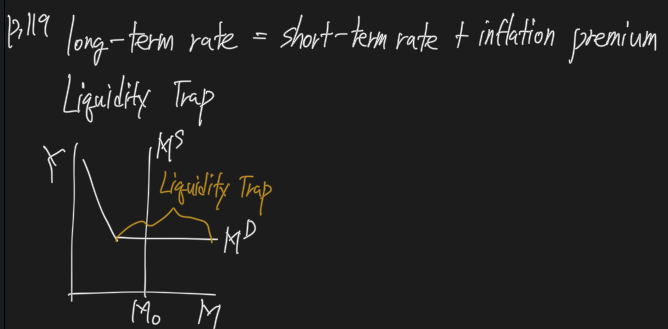 p.119 long-term rate = short-term rate + inflation premium
Liquidity Trap
r
M^S
Liquidity Trap
M^D
M₀ M